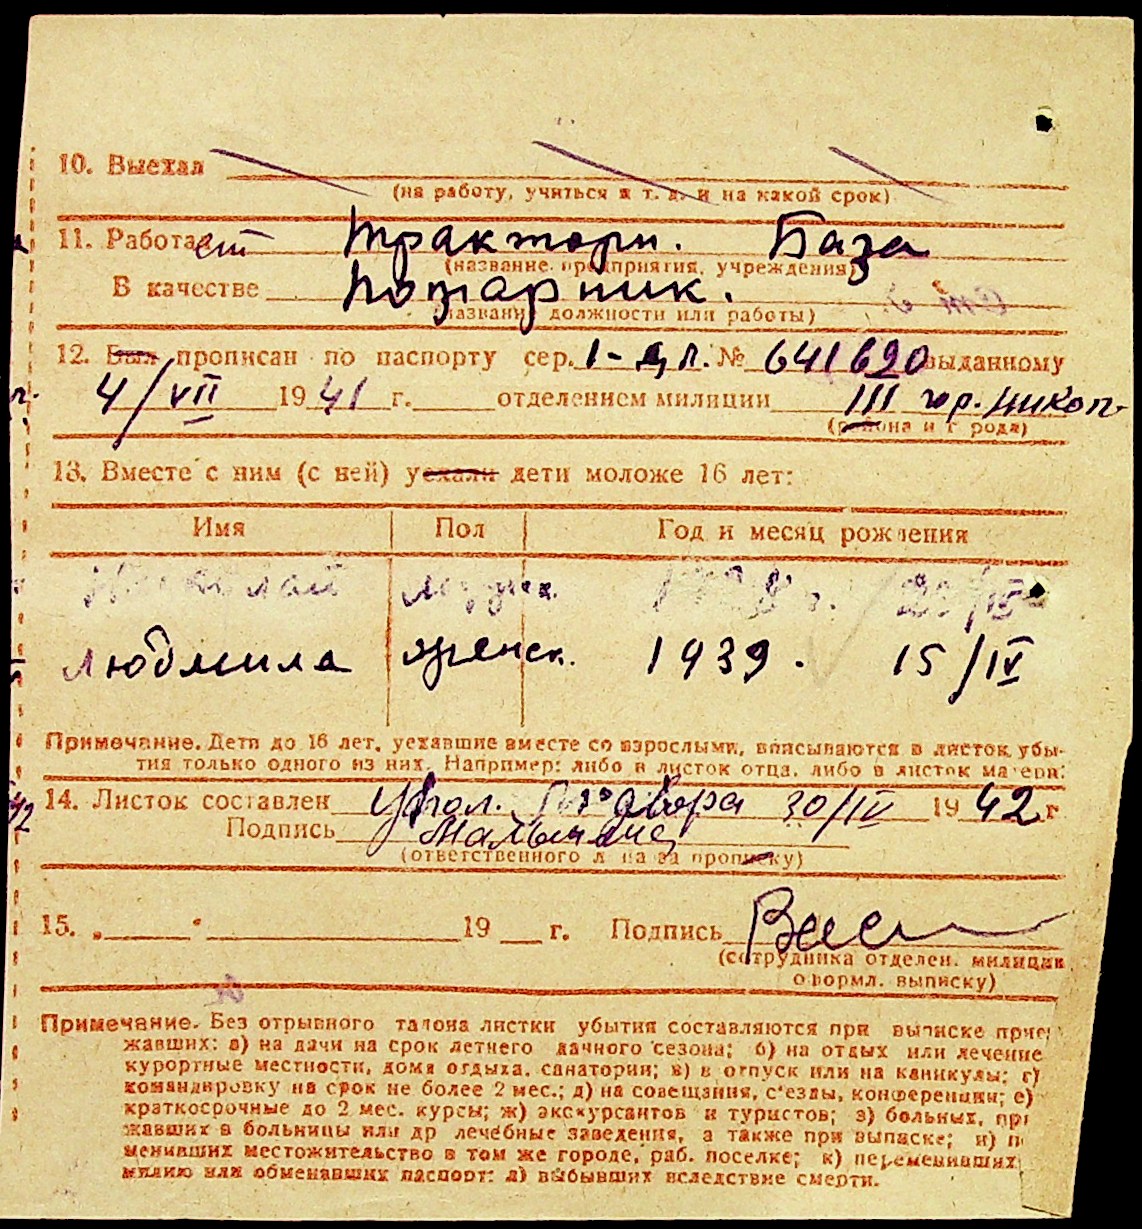 10. Выехал
(на работу, учиться и т. д. и на какой срок)
11. Работает Тракторн. База
(название предприятия, учреждения)
В качестве Пожарник.
(название должности или работы)
12. Был прописан по паспорту сер. I-ДЛ. № 641690 выданному
4/VII 1941 г. отделением милиции III гор. Никоп.
(района и города)
13. Вместе с ним (с ней) уехали дети моложе 16 лет:
Имя Пол Год и месяц рождения
Николай мужск.
Людмила женск. 1939. 15/IV
Примечание. Дети до 16 лет, уехавшие вместе со взрослыми, вписываются в листок убы-
тия только одного из них. Например: либо в листок отца, либо в листок матери.
14. Листок составлен 30/IV 1942 г
Подпись
(ответственного л на за прописку)
15. „ " 19 г. Подпись
(сотрудника отделен. милиции
оформл. выписку)
Примечание. Без отрывного талона листки убытия составляются при выписке прие
жавших: а) на дачи на срок летнего дачного сезона; б) на отдых или лечение
курортные местности, дома отдыха, санатории; в) в отпуск или на каникулы; г)
командировку на срок не более 2 мес.; д) на совещания, с'езды, конференции; е)
краткосрочные до 2 мес. курсы; ж) экскурсантов и туристов; з) больных, при
жавших в больницы или др лечебные заведения, а также при выписке; и) п
менивших местожительство в том же городе, раб. поселке; к) переменивших
милию или обменавших паспорт; л) выбывших вследствие смерти.